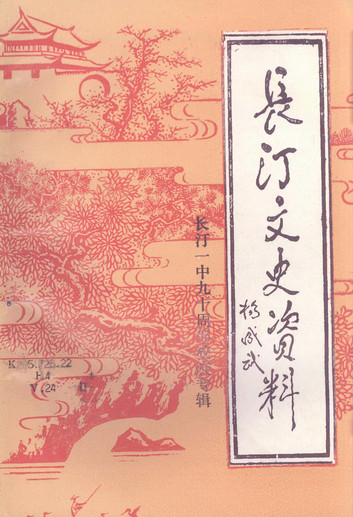 長汀文史資料
楊成武
长汀一中九十周年校庆专辑
K295.725.22
H4 4
V.24 D